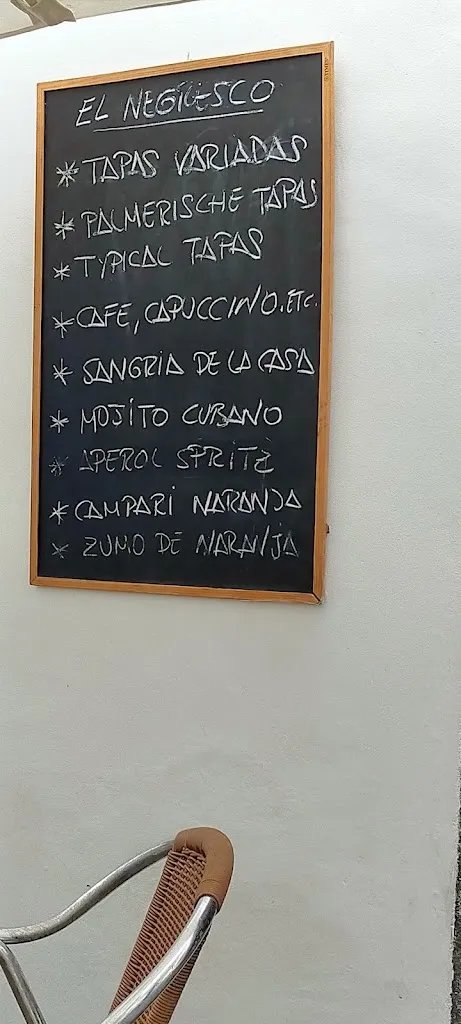 EL NEGRESCO
* TAPAS VARIADAS
* PALMERISCHE TAPAS
* TYPICAL TAPAS
* CAFE, CAPUCCINO.ETC.
* SANGRIA DE LA CASA
* MOJITO CUBANO
* APEROL SPRITZ
* CAMPARI NARANJA
* ZUMO DE NARANJA